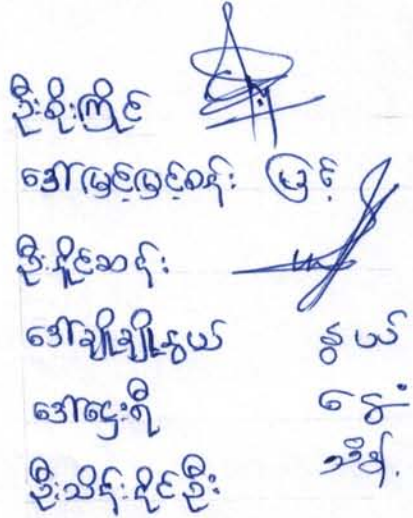 ဦးစိုးကြိုင်
ဒေါ်မြင့်မြင့်စန်း မြင့်
ဦးနိူင်ဆန်း
ဒေါ်ချိုချိုနွယ် နွယ်
ဒေါ်ဌေးရီ ဌေး
ဦးသိန်းဝိုင်ဦး သိန်း